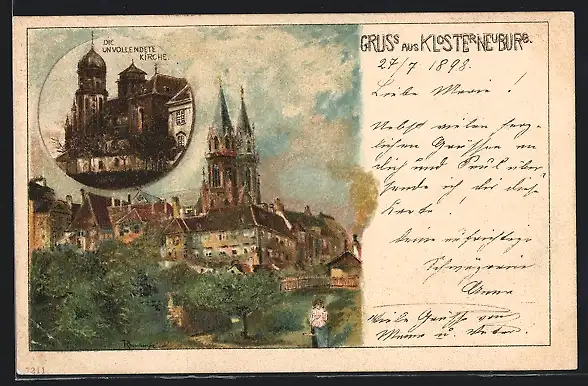 DIE
UNVOLLENDETE
KIRCHE.
GRUSS AUS KLOSTERNEUBURG.
27/7 1898.
Liebe Marie!
Nebst vielen herz-
lichen Grüssen an
dich und Paul über-
sende ich dir diese
Karte!
deine aufrichtige
Schwägerin
Anna
Viele Grüsse von
Mama u.
7211